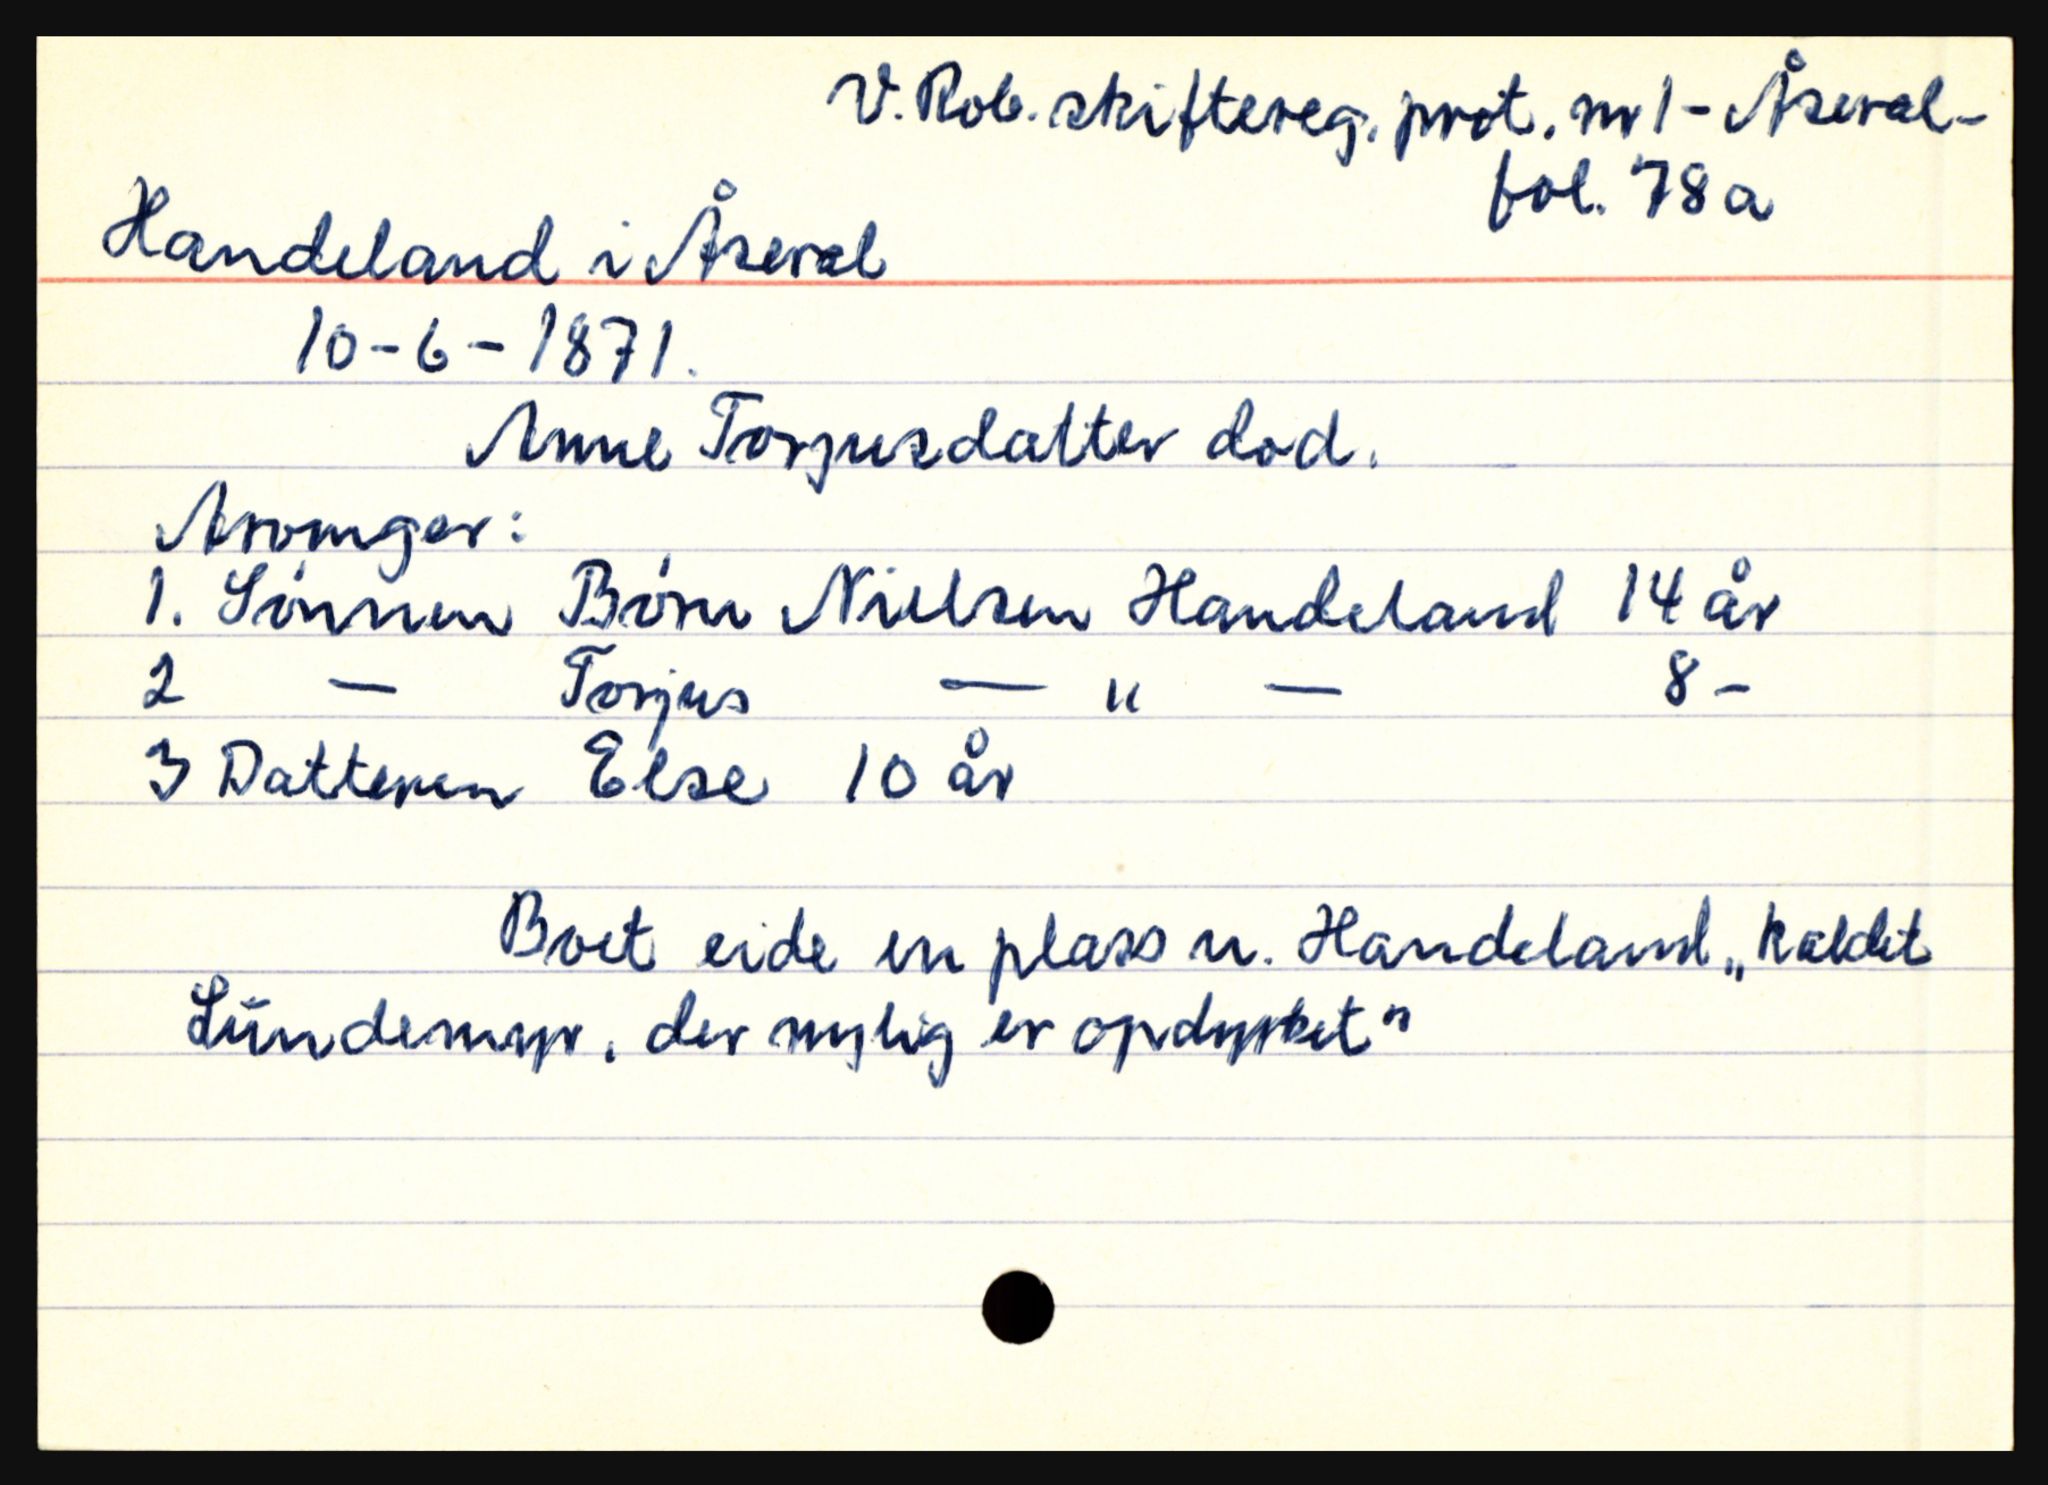 V. Rob. skiftereg. prot. nr 1 - Åseral -
fol. 78 a
Handeland i Åseral
10-6-1871.
Anne Torjusdatter død.
Arvinger:
1. Sønnen Børu Nielsen Handeland 14 år
2 — Torjus — " — 8 -
3 Datteren Else 10 år
Boet eide en plass u. Handeland „kaldet
Lundemyr, der nylig er opdyrket"